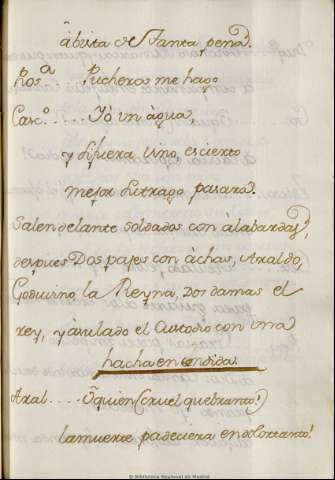 à vista de Tanta pena.
Ros.ª Pucheros me hago
Casc.º .... Yò un àgua,
y si fuera vino, es cierto
mejor su trago pasara.
Salen delante soldados con alabardas,
despues Dos pajes con àchas, Araldo,
Goduvino, la Reyna, Dos damas el
rey, y à su lado el Custodio con una
hacha encendida.
Aral .... ò quien (cruel quebranto!)
la muerte padeciera en dolor tanto!
© Biblioteca Regional de Madrid